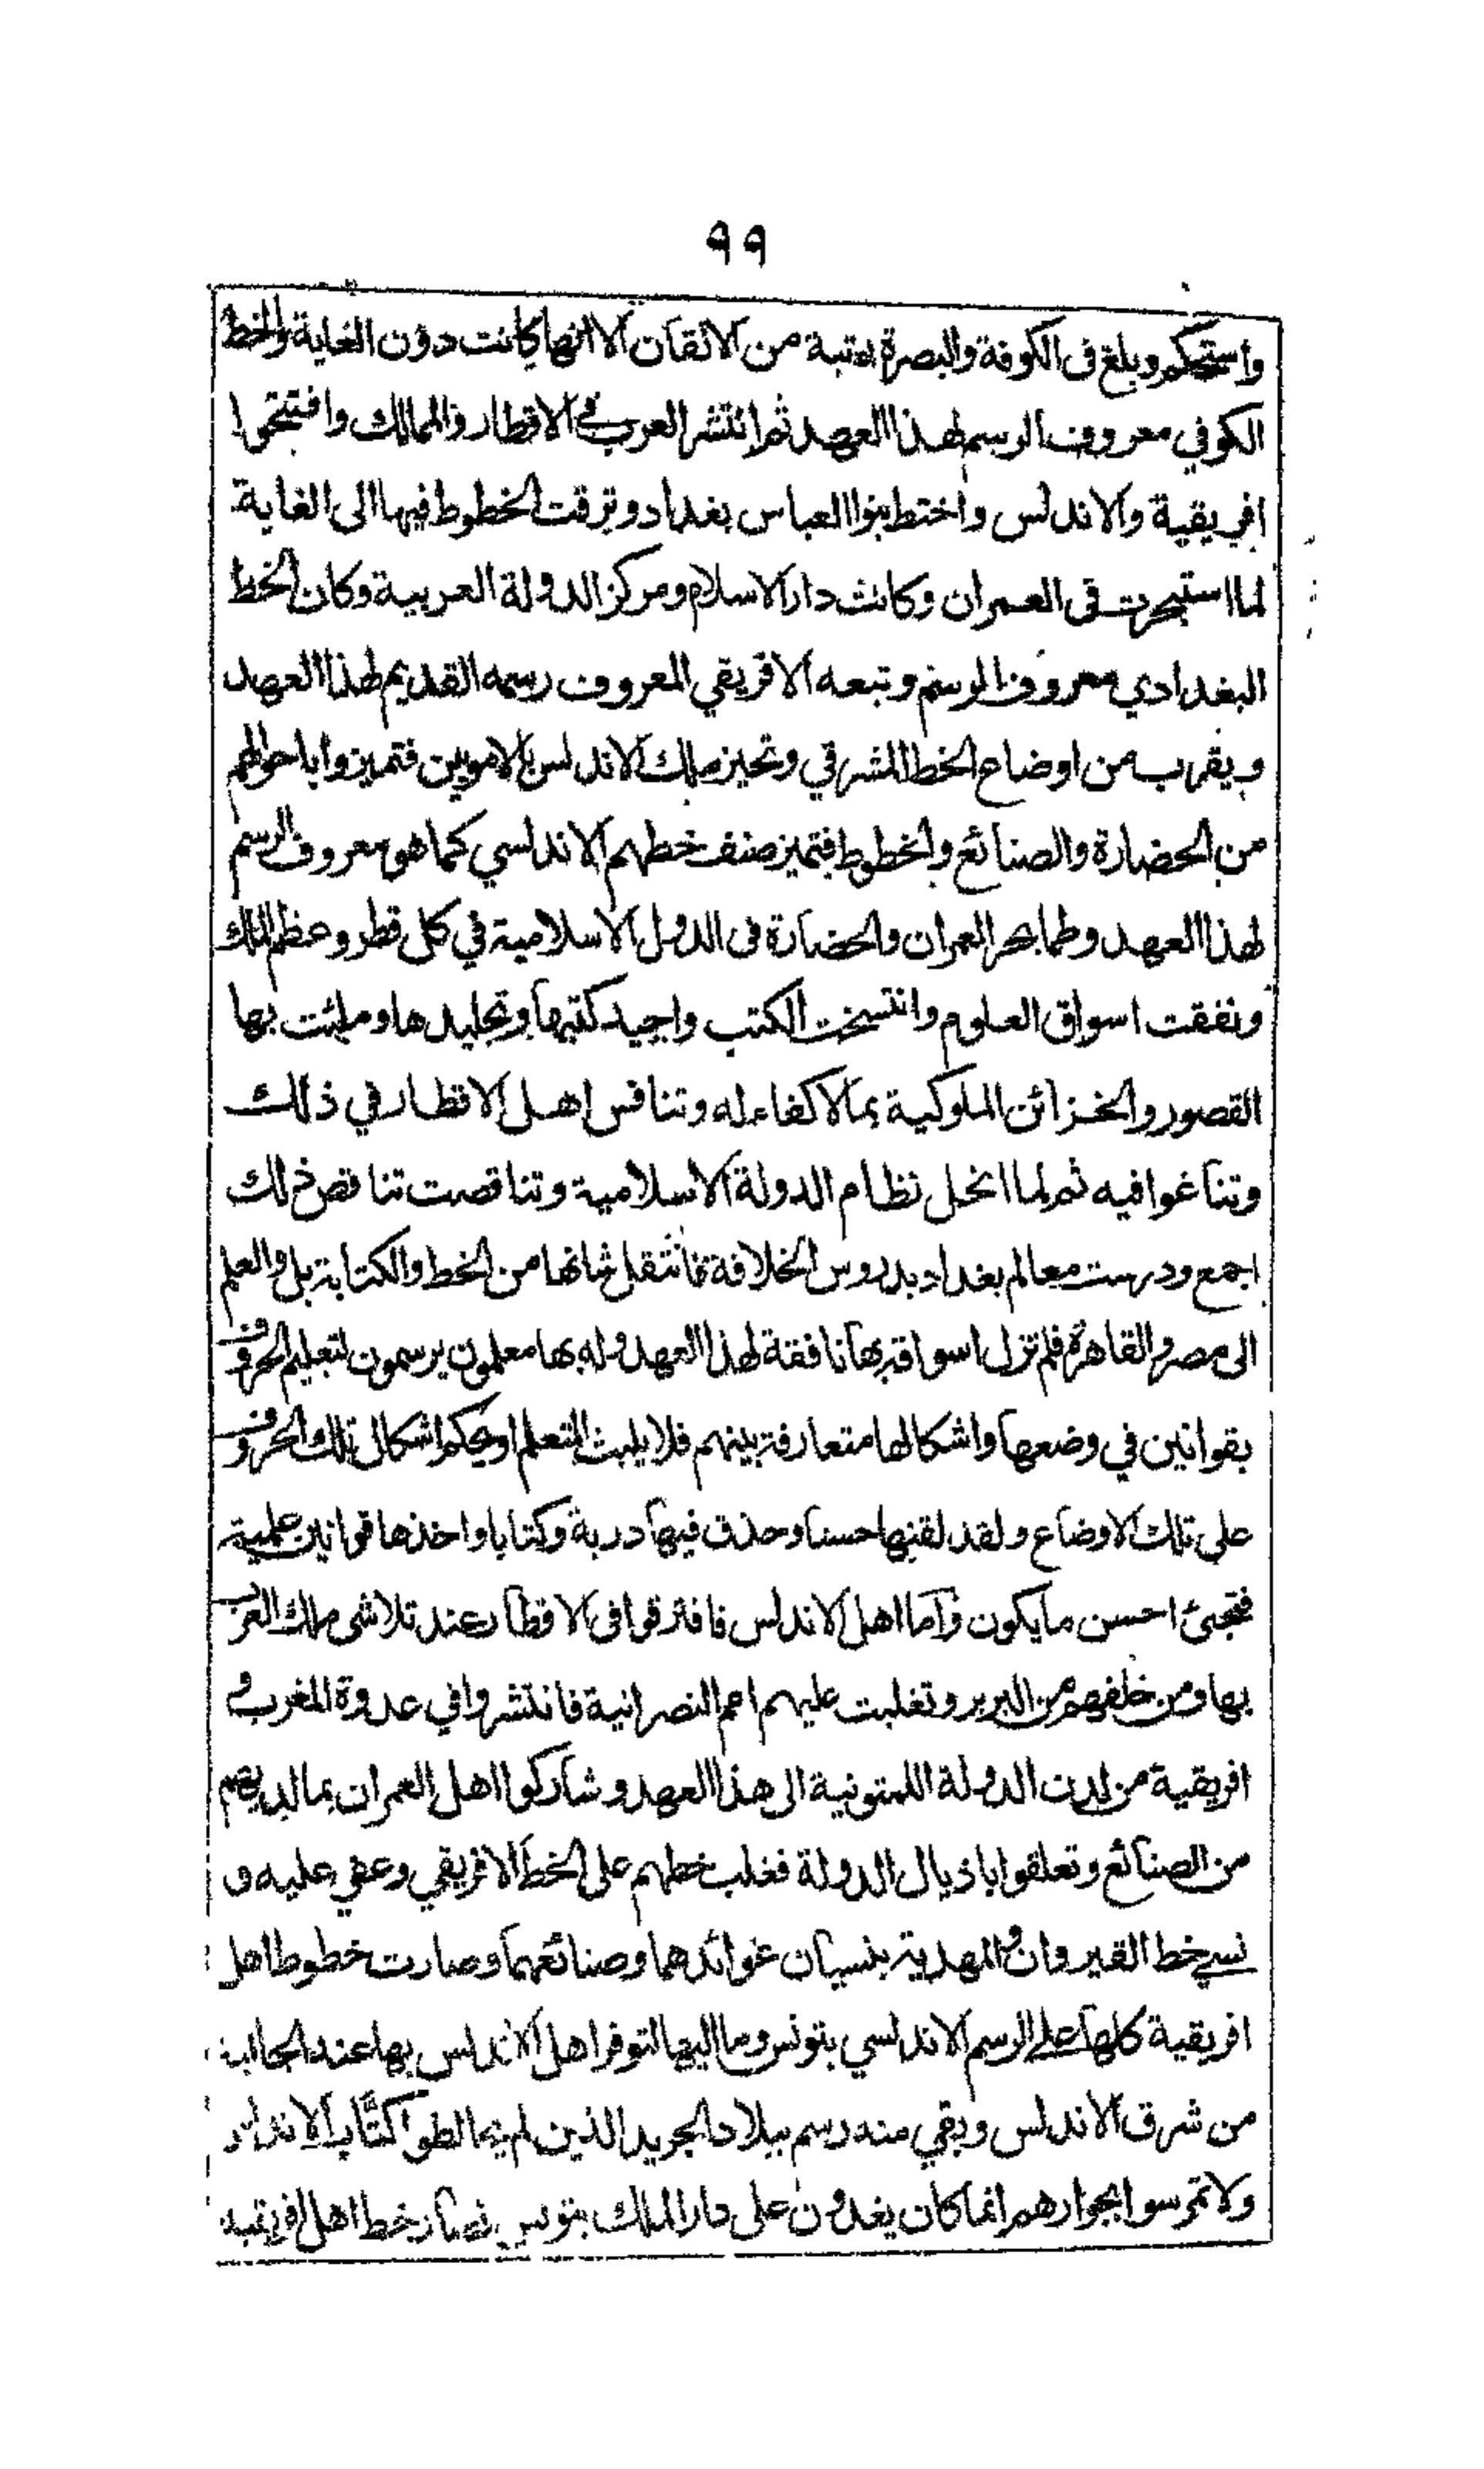 ٩٩
واستحكم وبلغ فى الكوفة والبصرة رتبة من الاتقان الا انها كانت دون الغاية والخط
الكوفي معروف الرسم لهذا العهد ثم انتشر العرب في الاقطار والممالك وافتتحوا
افريقية والاندلس واختط بنوا العباس بغداد وترقت الخطوط فيها الى الغاية
لما استبحرت فى العمران وكانت دار الاسلام ومركز الدولة العربية وكان الخط
البغدادي معروف الرسم وتبعه الافريقي المعروف رسمه القديم لهذا العهد
ويقرب من اوضاع الخط المشرقي وتحيز ملك الاندلس بالامويين فتميزوا باحوالهم
من الحضارة والصنائع والخطوط فتميز صنف خطهم الاندلسي كما هو معروف الرسم
لهذا العهد وطما بحر العمران والحضارة فى الدول الاسلامية في كل قطر وعظم الملك
ونفقت اسواق العلوم وانتسخت الكتب واجيد كتبها وتجليدها وملئت بها
القصور والخزائن الملوكية بما لا كفاء له وتنافس اهل الاقطار في ذلك
وتناغوا فيه ثم لما انحل نظام الدولة الاسلامية وتناقصت تناقص ذلك
اجمع ودرست معالم بغداد بدروس الخلافة فانتقل شانها من الخط والكتابة بل والعلم
الى مصر والقاهرة فلم تزل اسواقه بها نافقة لهذا العهد وله بها معلمون يرسمون لتعليم الحروف
بقوانين في وضعها واشكالها متعارفة بينهم فلا يلبث المتعلم او يحكم اشكال تلك الحروف
على تلك الاوضاع ولقد لقنها حسنا وحذق فيها دربة وكتابا واخذها قوانين علمية
فتجئ احسن ما يكون واما اهل الاندلس فافترقوا فى الاقطار عند تلاشى ملك العرب
بها ومن خلفهم من البربر وتغلبت عليهم امم النصرانية فانتشروا في عدوة المغرب و
افريقية من لدن الدولة اللمتونية الى هذا العهد وشاركوا اهل العمران بما لديهم
من الصنائع وتعلقوا باذيال الدولة فغلب خطهم على الخط الافريقي وعفى عليه و
نسي خط القيروان والمهدية بنسيان عوائدهما وصنائعهما وصارت خطوط اهل
افريقية كلها على الرسم الاندلسي بتونس وما اليها لتوفر اهل الاندلس بها عند الجالية
من شرق الاندلس وبقي منه رسم ببلاد الجريد الذين لم يخالطوا كتّاب الاندلس
ولا تمرسوا بجوارهم انما كان يغدون على دار الملك بتونس فصار خط اهل افريقية